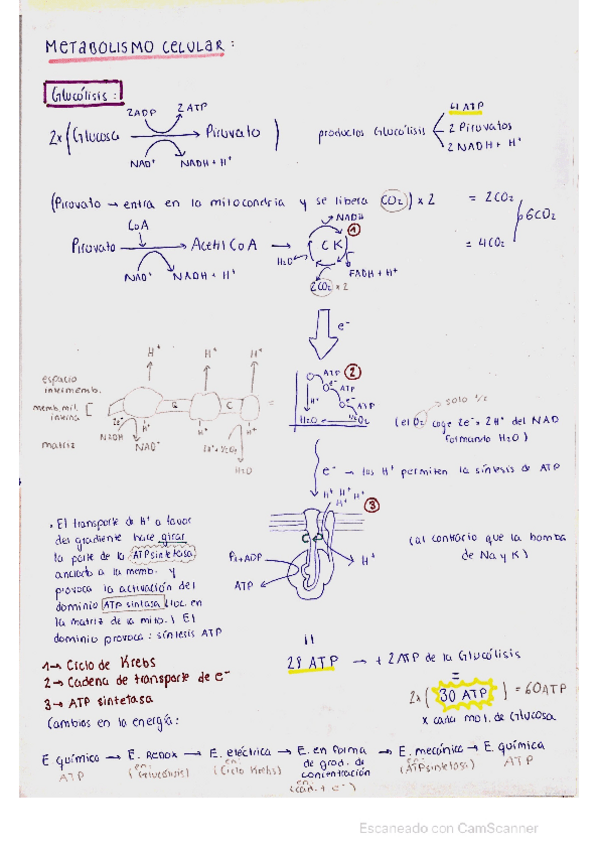 METABOLISMO CELULAR:
Glucólisis:
2ADP 2 ATP
2x (Glucosa → Piruvato)
NAD⁺ NADH + H⁺
productos Glucólisis
4 ATP
2 Piruvatos
2 NADH + H⁺
(Piruvato → entra en la mitocondria y se libera CO₂) x 2 = 2CO₂
6CO₂
= 4CO₂
CoA
Piruvato → Acetil CoA → CK
NAD⁺ NADH + H⁺
NADH
1
H₂O
FADH + H⁺
2CO₂ x 2
e⁻
H⁺ H⁺ H⁺
espacio
intermemb.
memb. mit.
interna
matriz
Q C
2e⁻ H⁺ H⁺
NADH NAD⁺
H₂O
=
ATP 2
e⁻ ATP
e⁻ ATP
H⁺
H₂O ½O₂
solo ½
(el O₂ coge 2e⁻ y 2H⁺ del NAD
formando H₂O)
e⁻ → los H⁺ permiten la síntesis de ATP
H⁺ H⁺ H⁺
H⁺ H⁺
3
Pi+ADP
ATP
H⁺
(al contrario que la bomba
de Na y K)
. El transporte de H⁺ a favor
del gradiente hace girar
la parte de la ATPsintetasa
anclada a la memb. y
provoca la activación del
dominio ATP sintasa (loc. en
la matriz de la mito.) El
dominio provoca: síntesis ATP
=
28 ATP → + 2 ATP de la Glucólisis
=
2x (30 ATP) = 60 ATP
x cada mol. de Glucosa
1→ Ciclo de Krebs
2→ Cadena de transporte de e⁻
3→ ATP sintetasa
Cambios en la energía:
E química → E. Redox → E. eléctrica → E. en forma de grad. de concentración → E. mecánica → E. química
ATP (en: Glucólisis) (en: Ciclo Krebs) (cad. t e⁻) (en: ATPsintetasa) ATP
Escaneado con CamScanner